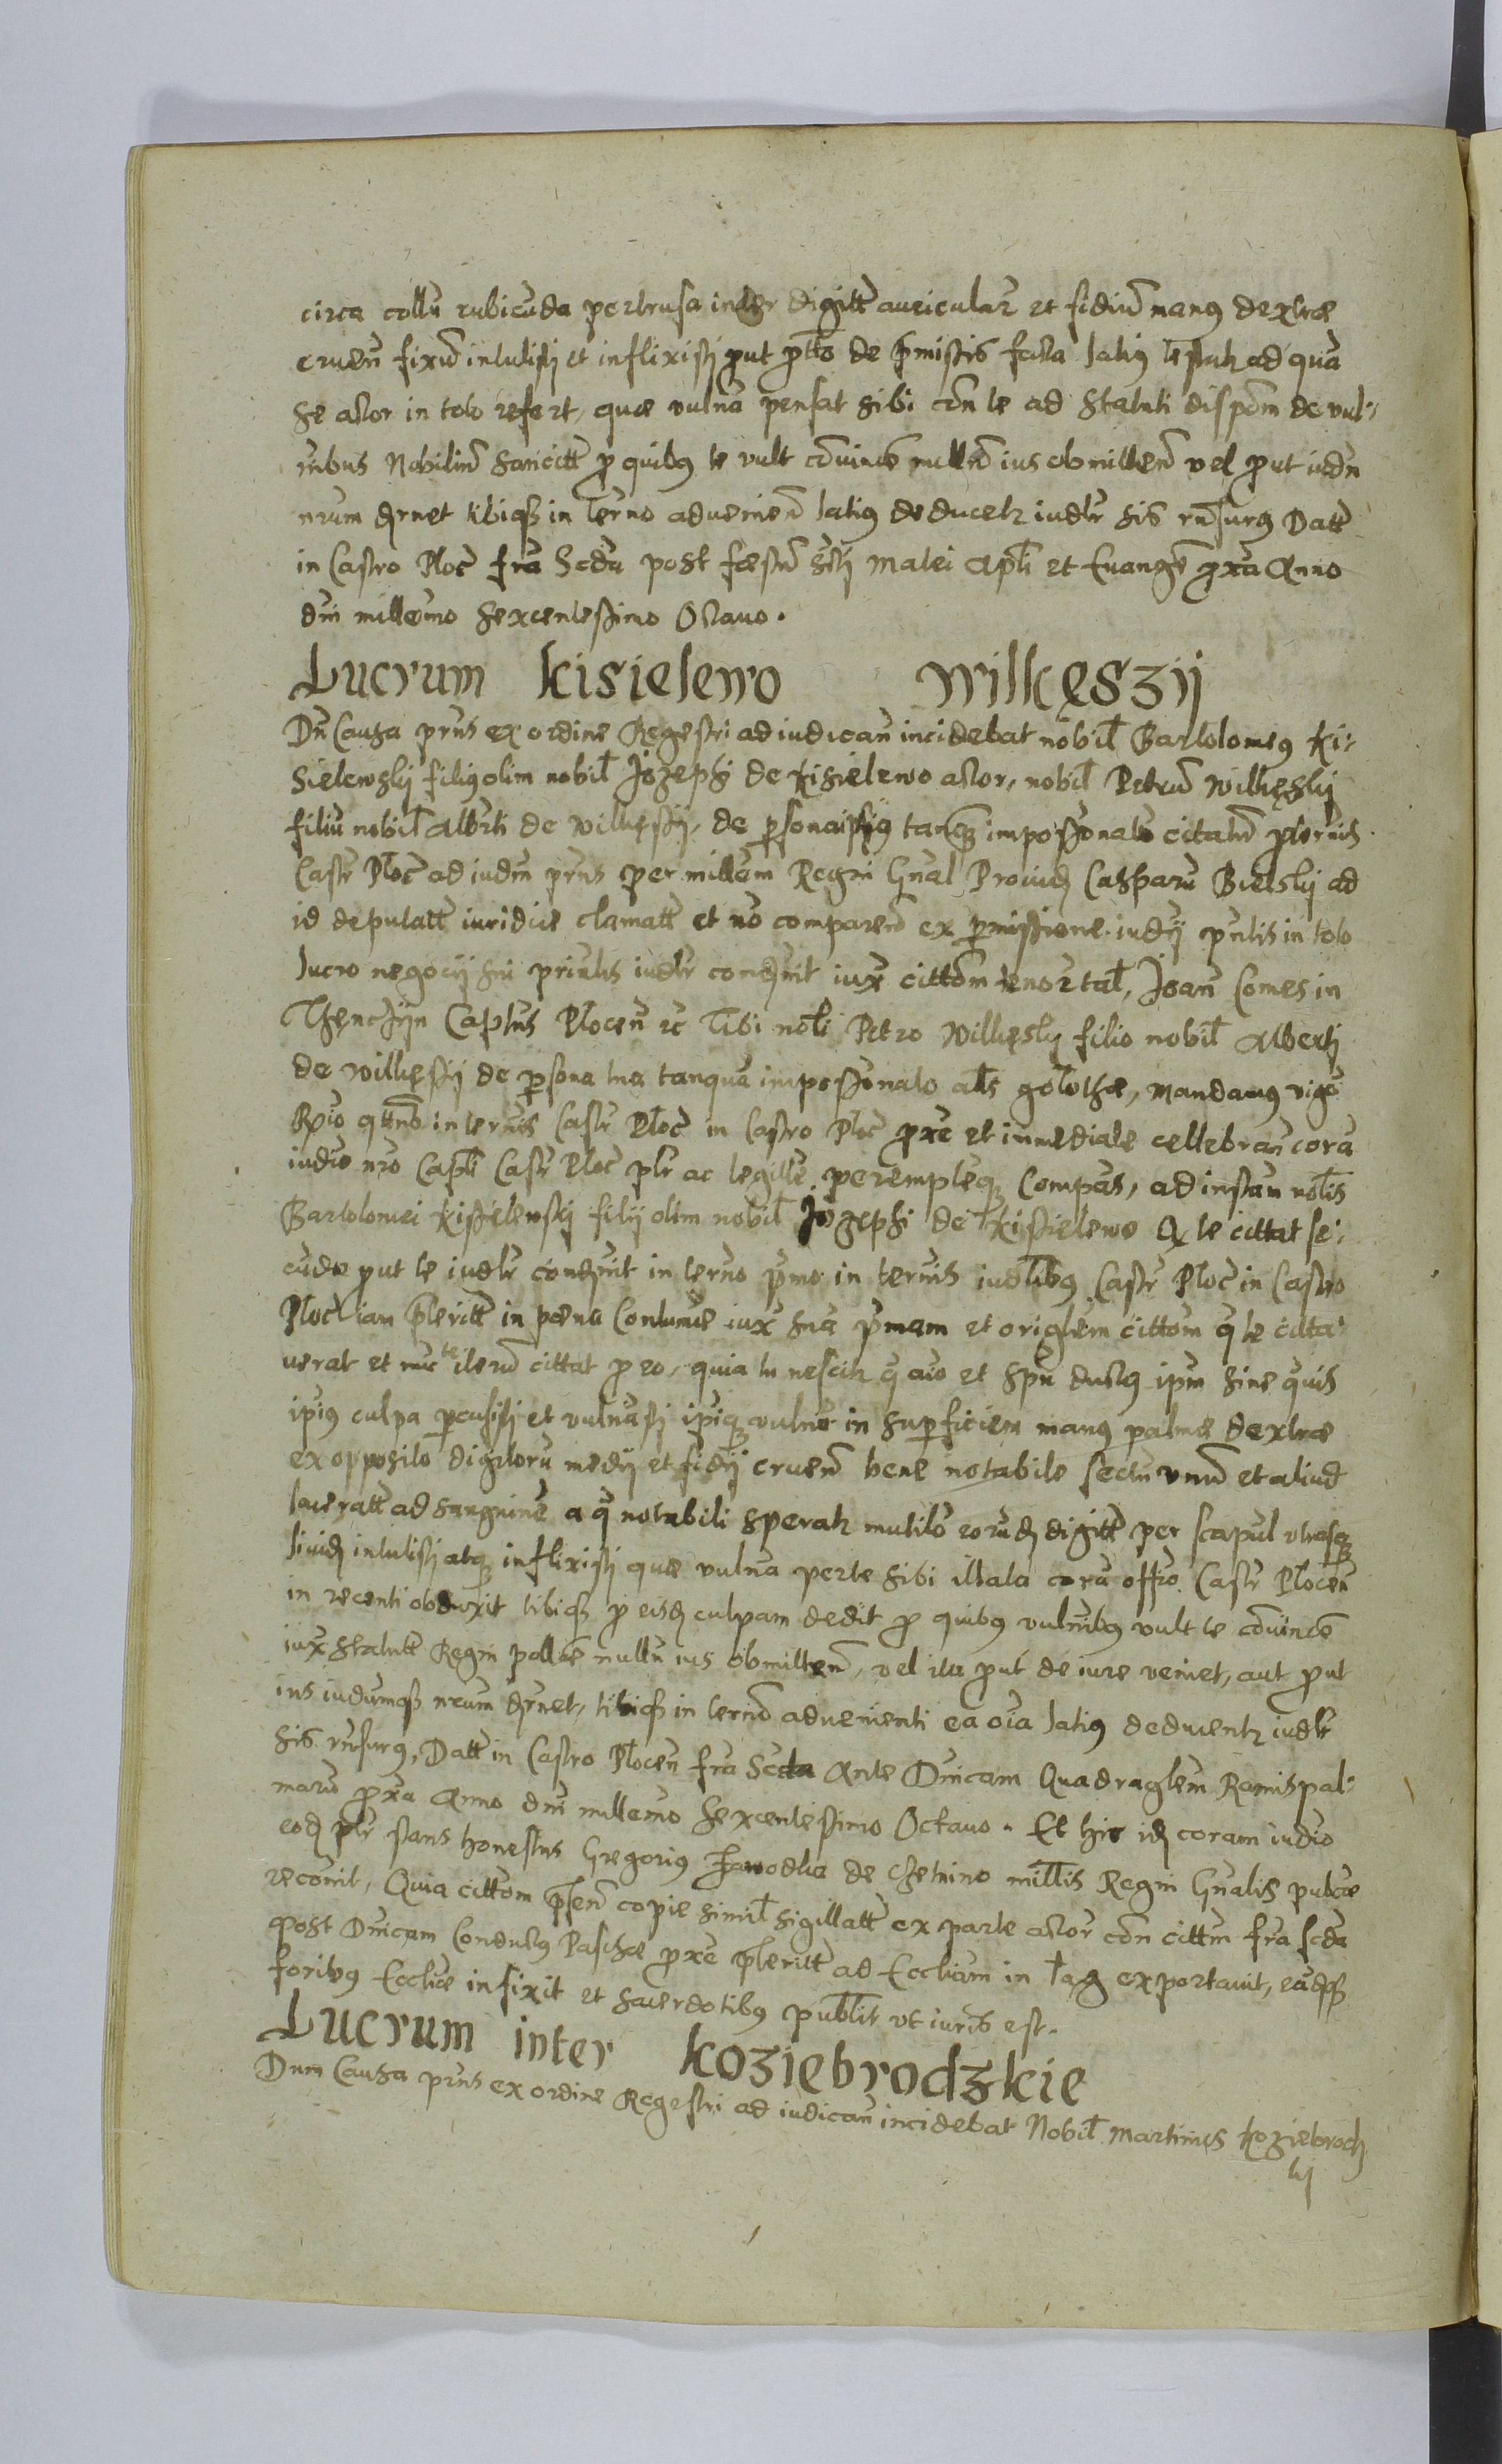 circa collu rubicuda pertrusa inter digitt auricular et fidiũ manus dextræ
cruen fixũ intulisti et inflixisti prout de præmissis facta latius ad qua
se actor in toto refert, quæ vulna pensat sibi cõn te ad Statuti dispõm de vul-
nibus Nobiliũ sancitt pro quibus te vult cõvince nullũ ius obmitteñ vel prout iudm
nrum drnet tibiqz in terno advenieñ latius deducetr iudlr sis rnsurus Datt
in Castro Ploc fra Scda post fæstũ Sti Matei Apli et Evange prxa Anno
dni millesimo sexcentessimo Octavo.
Lucrum Kisielewo Wilkęszij
Dũ Causa prns ex ordine Regestri ad iudicañ incidebat nobil Bartolomeus Ki-
sielewskij filius olim nobil Jozephi de Kisielewo actor, nobil Petrũ Wilkęskij
filiũ nobil Alberti de Wilkęskij, de persona ipsius tanqz impossionato citatũ
Castr Ploc ad iudm prns per millem Regni Gnal Providz Casparũ Bielskij ad
id deputatt iuridice clamatt et nõ compareñ ex pmissione iudij pntis in toto
lucro negocij sui priulis iudlr condemnit iux cittõm tenor tal, Joañ Comes in
Thęnczijn Captus Ploceñ rc Tibi nobli Petro Wilkęskij filio nobil Alberti
de Wilkęskij de persona tua tanqua impossionato als gołotha, mandamus
qttno in ternis Castr Ploc in Castro Ploc prxe et inmediate cellebrañ corã
iudio nro Capli Castr Ploc plr ac legitte peremptieqz Compas, ad instañ noblis
Bartolomei Kisielewskij filij olim nobil Jozephi de Kissielewo Qz te cittat se-
cudo prout te iudlr condemnit in terno pmo in ternis iudlibus Castr Ploc in Castro
Ploc iam pteritt in pœna Contumæ iux sua pmam et originem cittõm q te citta-
verat et nuc te iterũ cittat pro eo, quia tu nescitr q aio et spũ ductus ipm sine quis
ipius culpa pcusisti et vulnasti ipiqz vulnus in superficiem manus palmæ dextræ
ex opposito digitorũ medij et fidij crueñ bene notabile sectũ unũ et aliud
laceratt ad sanguine a q notabili speratr mutilõ eorudz digitt per scapul utrasqz
lividz intulisti atqz inflixisti quæ vulna perte sibi illata corã offio Castr Ploceñ
in recenti obduxit tibiqz pro eisdz culpam dedit pro quibus vulnibus vult te cõvince
iux Statutt Regni polloe nullũ ius obmitteñ, vel ita prout de iure veniet, aut prout
ius iudumqz nrum drnet, tibiqz in ternõ advenienti ea oia latius deducentr iudlr
sis rnsurus, Datt in Castro Ploceñ fra Scda Ante Dnicam Quadraglem Ramispal-
marũ prxa Anno dni millesimo Sexcentessimo Octavo. Et hic idz coram iudio
eodz plr stans honestus Gregorius de Czernino millis Regni Gnalis pubcæ
recõnit, Quia cittõm pseñ copie simil sigillatt ex parte actor cõn cittm fra scda
post Dnicam Conductus Paschæ prxe pteritt ad Eccliam in Łąg exportavit, eadqz
foribus Eccliæ infixit et sacerdotibus publit ut iuris est.
Lucrum inter Koziebrodzkie
Dum Causa prns ex ordine Regestri ad iudicañ incidebat Nobil Martinus Koziebrodz
kij